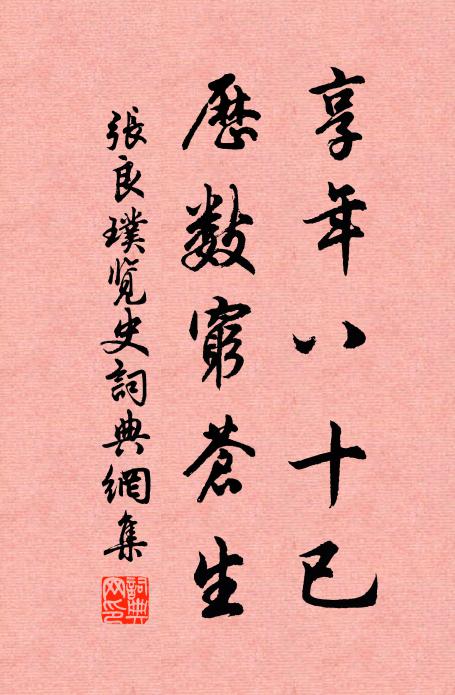 享年八十已
歷數窮蒼生
張良璞覽史詞典網集
詞典網印